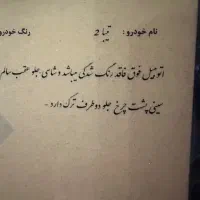 نام خودرو : تیبا 2 رنگ خودرو
اتومبیل فوق فاقد رنگ شدگی میباشد و شاسی جلو عقب سالم
سینی پشت چرخ جلو دو طرف ترک دارد -